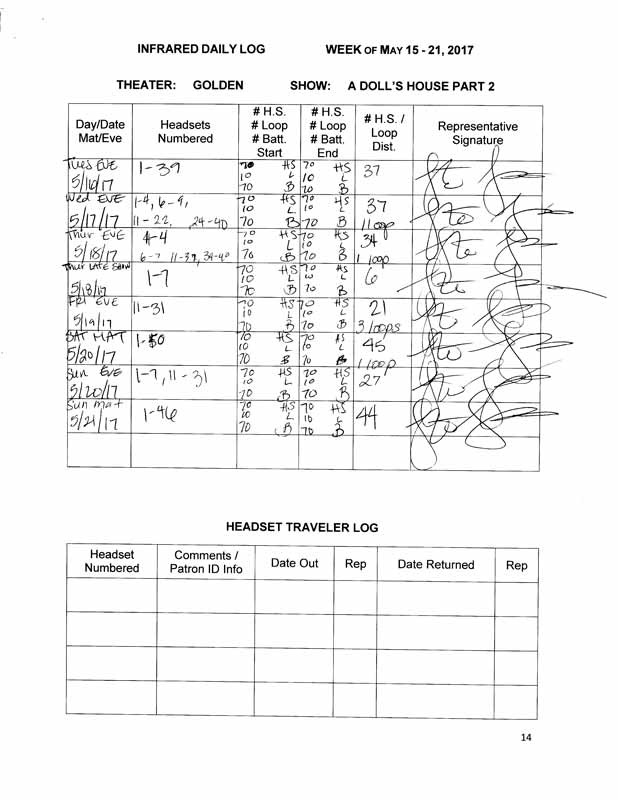 INFRARED DAILY LOG WEEK OF MAY 15 - 21, 2017
THEATER: GOLDEN SHOW: A DOLL'S HOUSE PART 2
Day/Date Mat/Eve
Headsets Numbered
# H.S. # Loop # Batt. Start
# H.S. # Loop # Batt. End
# H.S. / Loop Dist.
Representative Signature
Tues EVE 5/16/17
1-39
70 HS 10 L 70 B
70 HS 10 L 70 B
37
Wed EVE 5/17/17
1-4, 6-9, 11-22, 24-40
70 HS 10 L 70 B
70 HS 10 L 70 B
37 1 loop
Thur EVE 5/18/17
6-7 11-39, 39-40
70 HS 10 L 70 B
70 HS 10 L 70 B
34 1 loop
Thur LATE SHOW 5/18/17
1-7
70 HS 10 L 70 B
70 HS L 70 B
6
FRI EVE 5/19/17
11-31
70 HS 10 L 70 B
70 HS 10 L 70 B
21 3 loops
SAT MAT 5/20/17
1-50
70 HS 10 L 70 B
70 HS 10 L 70 B
45 1 loop
Sun EVE 5/20/17
1-7, 11-31
70 HS 10 L 70 B
70 HS 10 L 70 B
27
Sun mat 5/21/17
1-46
70 HS 10 L 70 B
70 HS 10 L 70 B
44
HEADSET TRAVELER LOG
Headset Numbered
Comments / Patron ID Info
Date Out
Rep
Date Returned
Rep
14